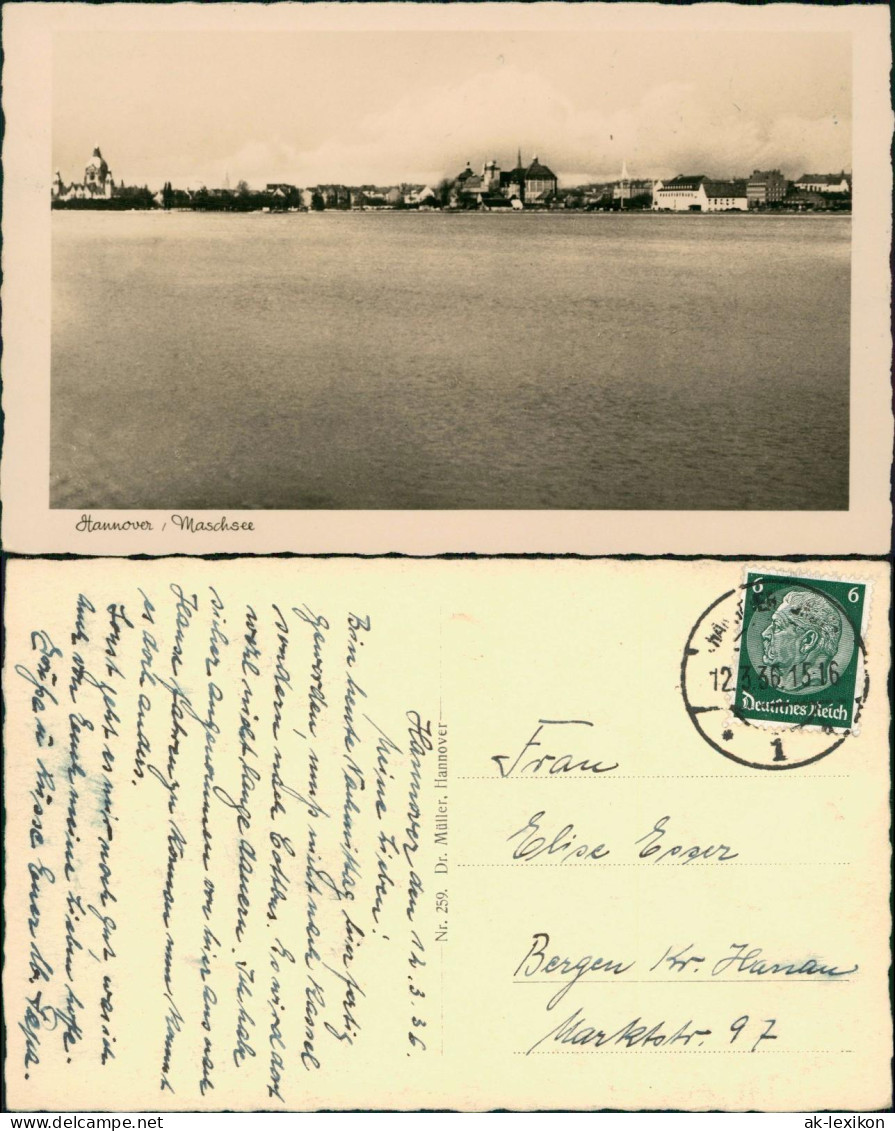 Hannover / Maschsee
Hannover den 12.3.36.
Meine Lieben!
Bin heute Vormittag hier fertig
geworden, muß nicht nach Kassel
sondern nach Cottbus. Es wird dort
wohl nicht lange dauern. Ich hab
sicher angenommen von hier aus nach
Hause fahren zu können nun kommt
es doch anders.
Sonst geht es mir noch gut, was ich
auch von Euch meine Lieben hoffe.
Grüße u Küsse Euer lb. Papa.
Nr. 259. Dr. Müller, Hannover
6 6
Deutsches Reich
HANNOVER
12.3.36.15-16
* 1
Frau
Elise Esser
Bergen Kr. Hanau
Marktstr. 97
delcampe.net
ak-lexikon